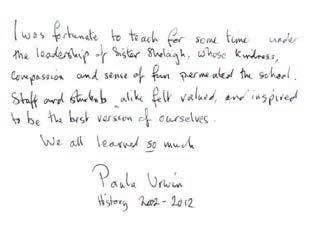 I was fortunate to teach for some time under
the leadership of Sister Shelagh, whose kindness,
compassion and sense of fun permeated the school.
Staff and students alike felt valued, and inspired
to be the best version of ourselves.
We all learned so much
Paula Urwin
History 2002-2012